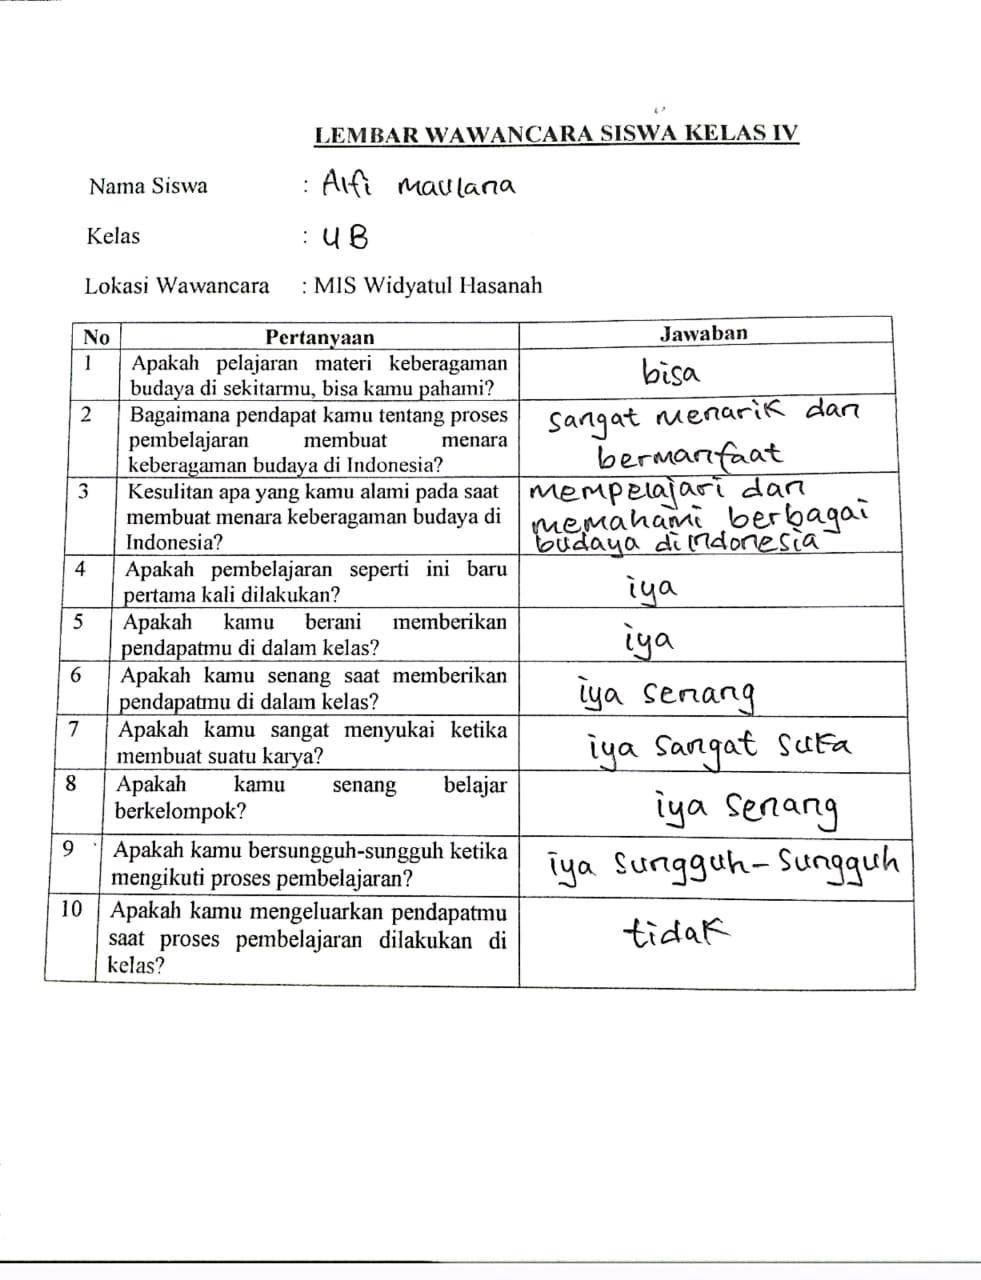 LEMBAR WAWANCARA SISWA KELAS IV
Nama Siswa : Alfi Maulana
Kelas : 4B
Lokasi Wawancara : MIS Widyatul Hasanah
No Pertanyaan Jawaban
1 Apakah pelajaran materi keberagaman
budaya di sekitarmu, bisa kamu pahami?
bisa
2 Bagaimana pendapat kamu tentang proses
pembelajaran membuat menara
keberagaman budaya di Indonesia?
sangat menarik dan
bermanfaat
3 Kesulitan apa yang kamu alami pada saat
membuat menara keberagaman budaya di
Indonesia?
mempelajari dan
memahami berbagai
budaya di indonesia
4 Apakah pembelajaran seperti ini baru
pertama kali dilakukan?
iya
5 Apakah kamu berani memberikan
pendapatmu di dalam kelas?
iya
6 Apakah kamu senang saat memberikan
pendapatmu di dalam kelas?
iya senang
7 Apakah kamu sangat menyukai ketika
membuat suatu karya?
iya sangat suka
8 Apakah kamu senang belajar
berkelompok?
iya senang
9 Apakah kamu bersungguh-sungguh ketika
mengikuti proses pembelajaran?
iya sungguh-sungguh
10 Apakah kamu mengeluarkan pendapatmu
saat proses pembelajaran dilakukan di
kelas?
tidak